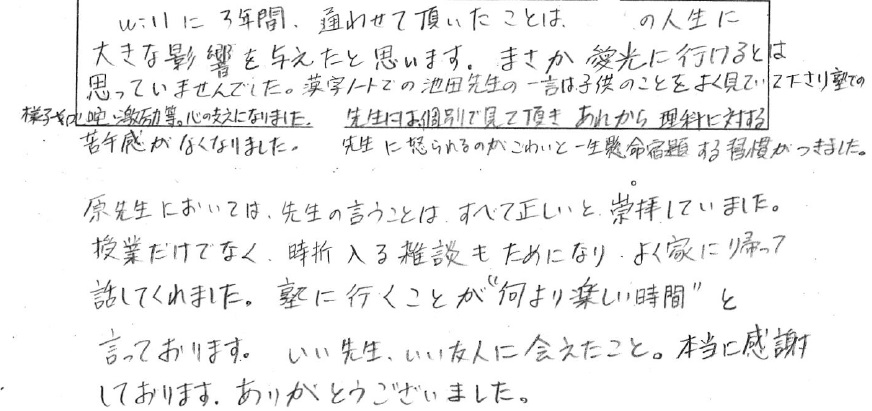 will に 3年間、通わせて頂いたことは、 の人生に
大きな影響を与えたと思います。まさか愛光に行けるとは
思っていませんでした。漢字ノートでの池田先生の一言は子供のことをよく見ていて下さり塾での
様子 激励等。心の支えになりました。 先生には個別で見て頂き あれから 理科に対する
苦手感がなくなりました。 先生に怒られるのがこわいと一生懸命宿題する習慣がつきました。
原先生においては、先生の言うことは、すべて正しいと、崇拝していました。
授業だけでなく、時折入る雑談もためになり、よく家に帰って
話してくれました。塾に行くことが“何より楽しい時間”と
言っております。 いい先生、いい友人に会えたこと。本当に感謝
しております。ありがとうございました。